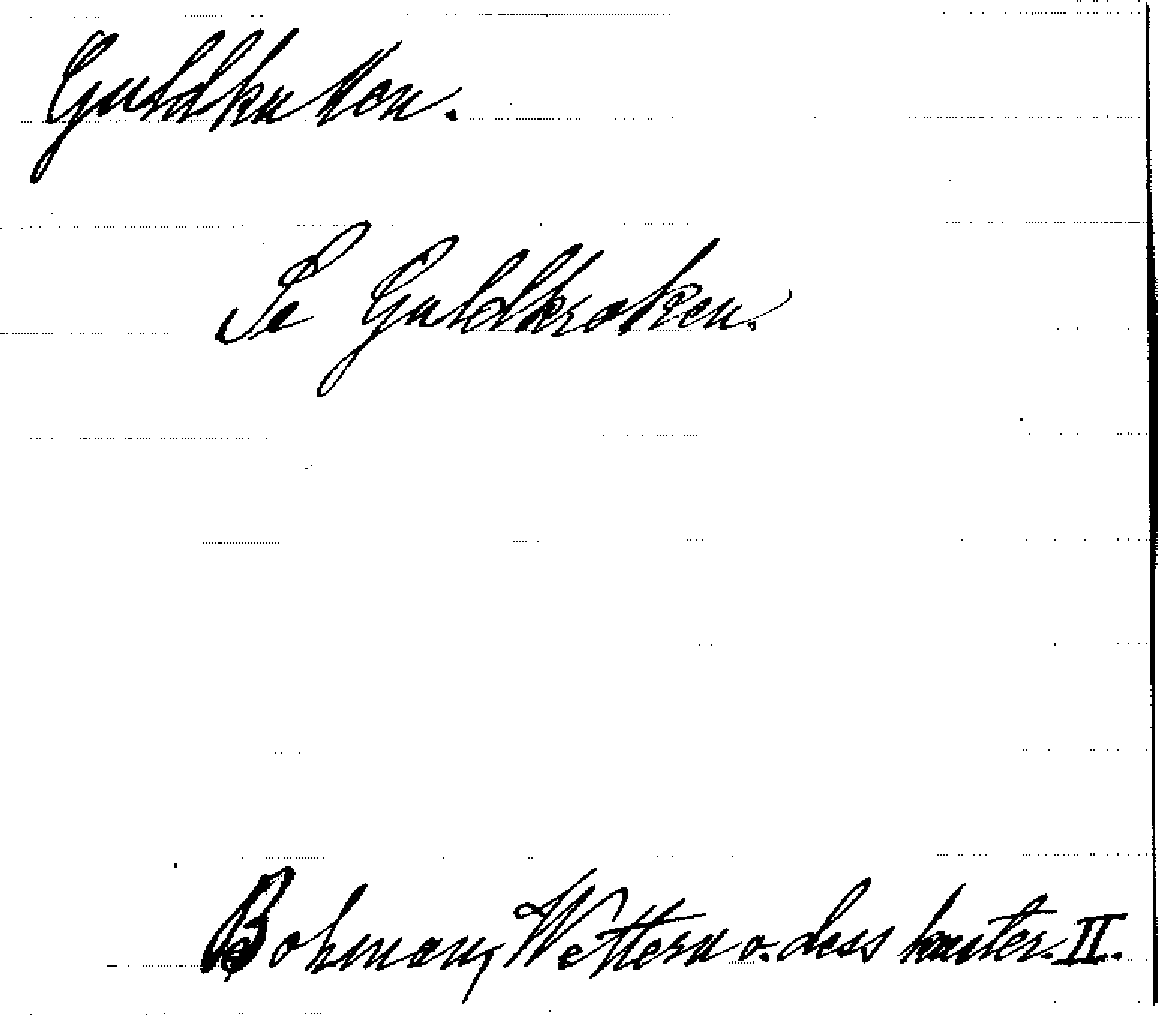 Guldkutten.
Se Guldkroken.
Bohman, Wettern o. dess kuster. II.